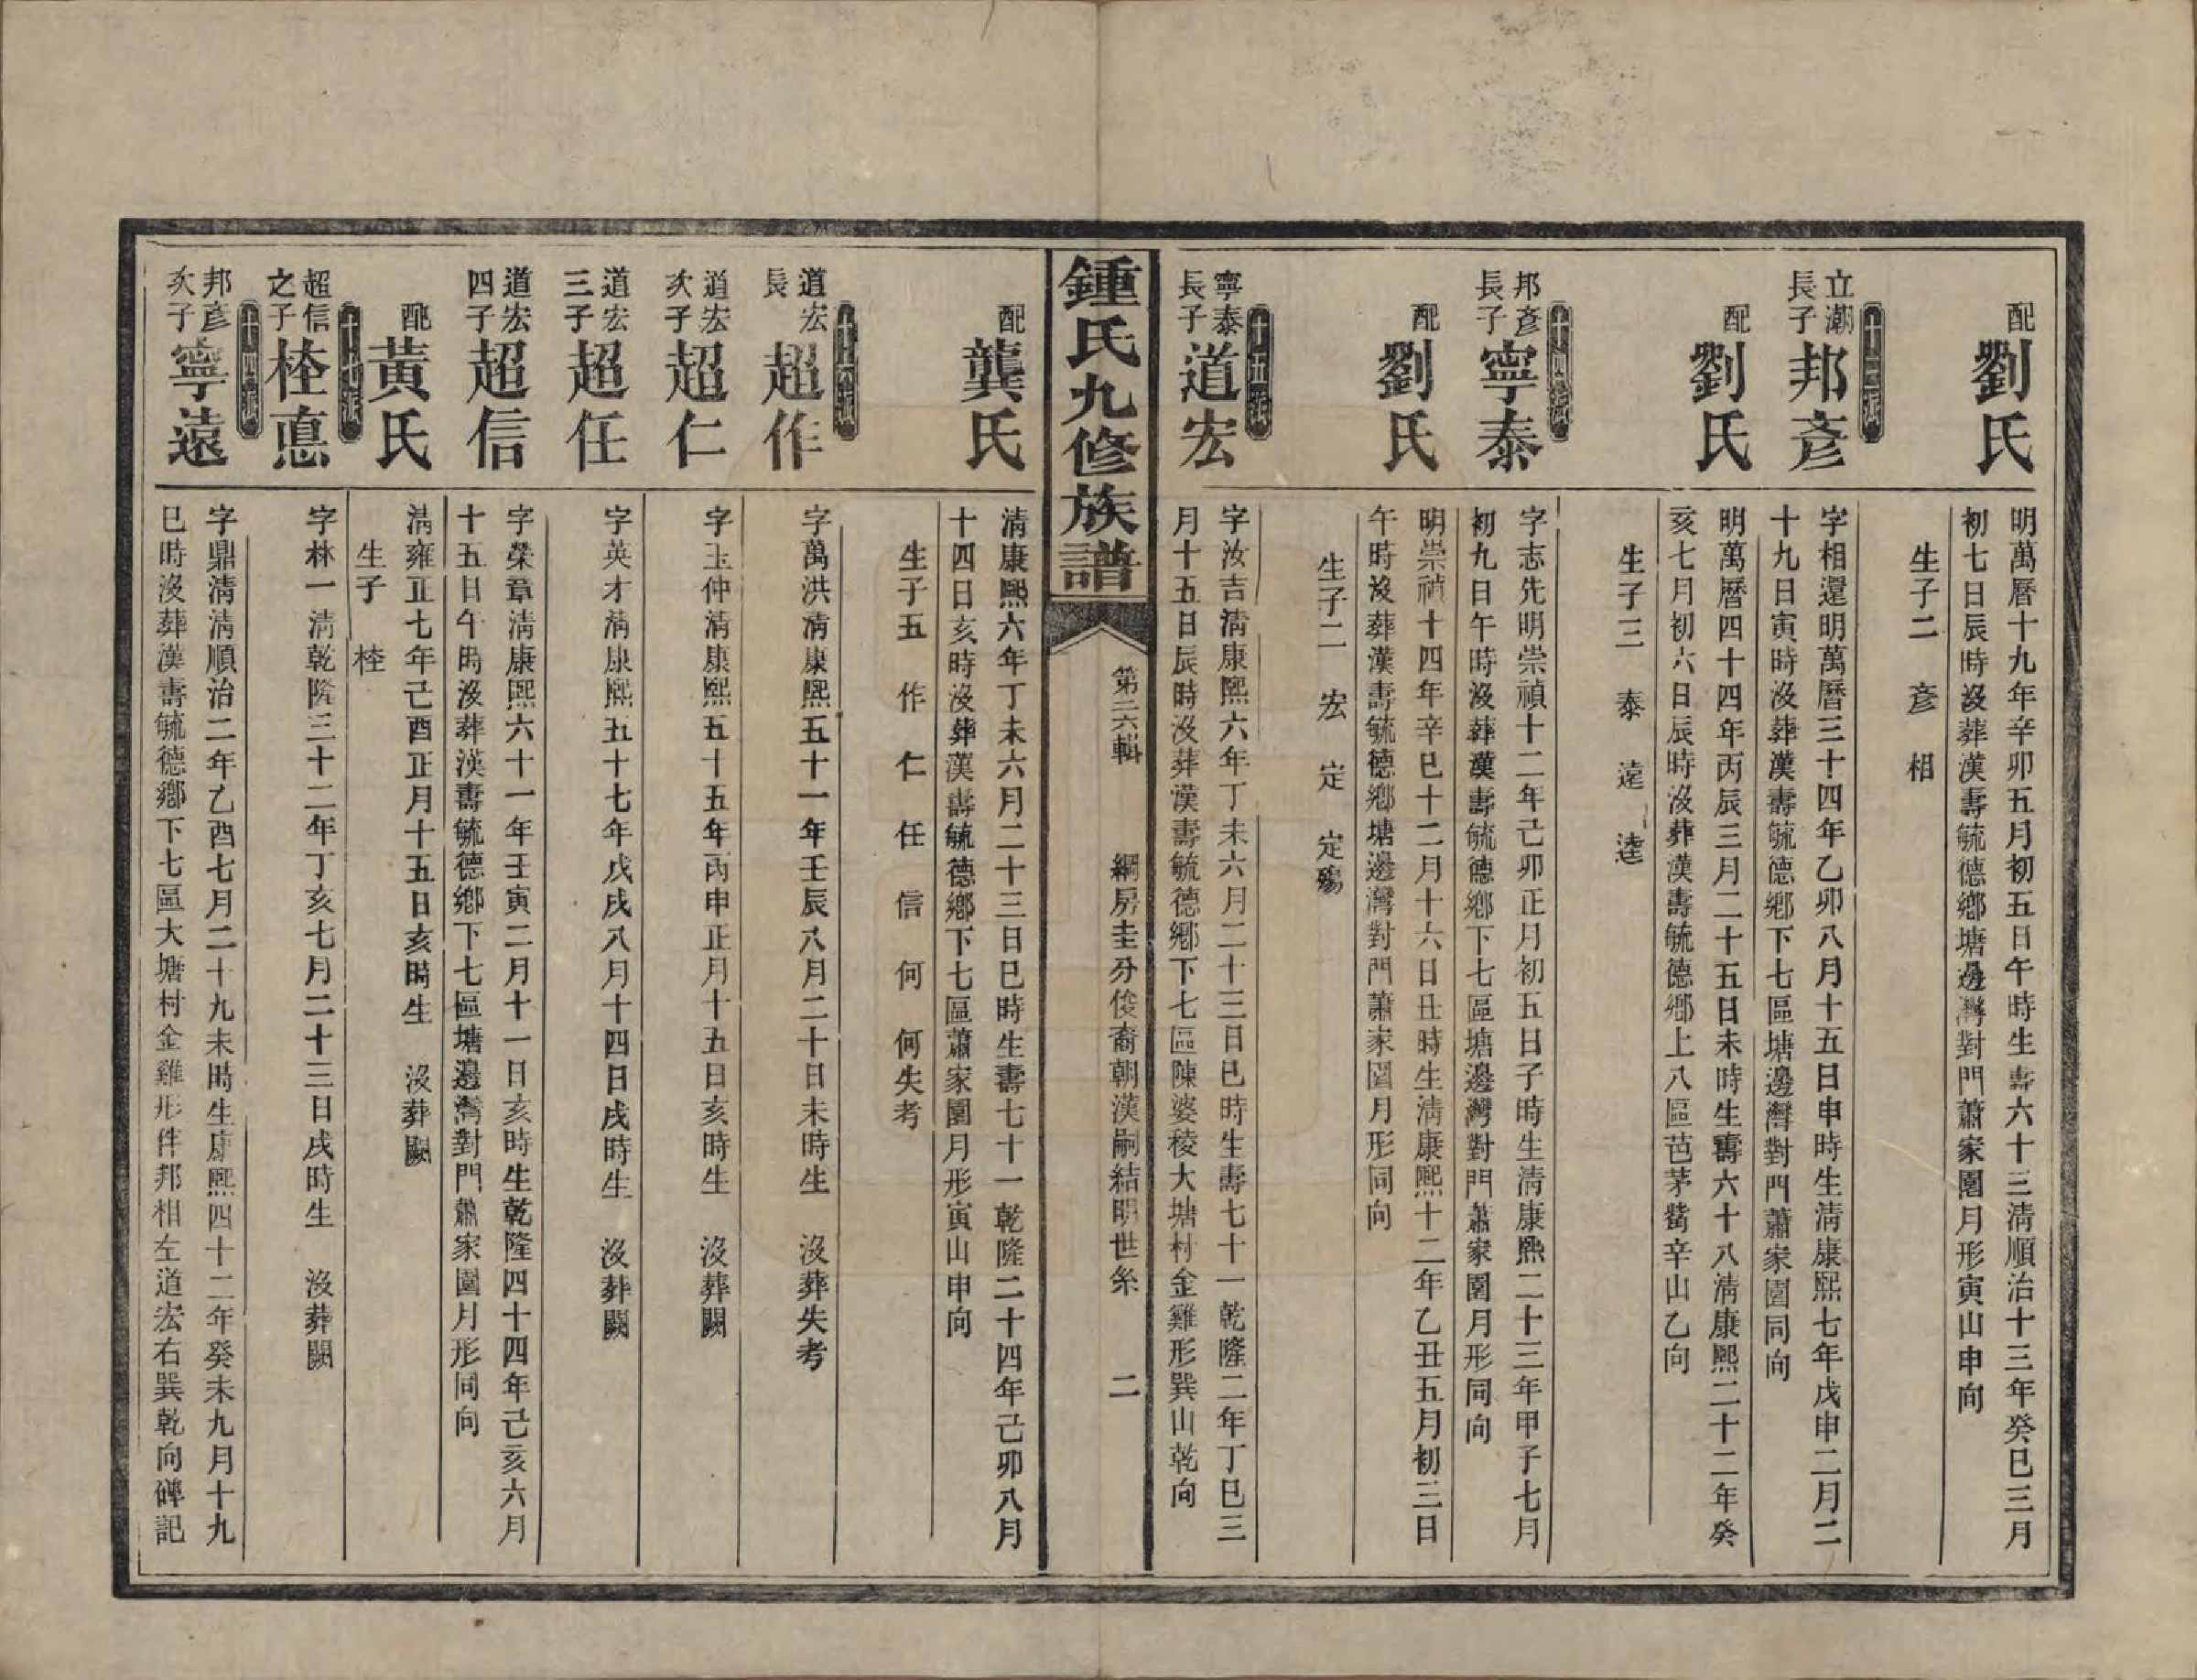 配
劉氏
明萬曆十九年辛卯五月初五日午時生壽六十三清順治十三年癸巳三月
初七日辰時沒葬漢壽毓德鄉塘邊灣對門蕭家園月形寅山申向
生子二 彥 相
十三派
立潮
長子
邦彥
字相還明萬曆三十四年乙卯八月十五日申時生清康熙七年戊申二月二
十九日寅時沒葬漢壽毓德鄉下七區塘邊灣對門蕭家園同向
配
劉氏
明萬曆四十四年丙辰三月二十五日未時生壽六十八清康熙二十二年癸
亥七月初六日辰時沒葬漢壽毓德鄉上八區芭茅觜辛山乙向
生子三 泰 遠 逵
十四派
邦彥
長子
寧泰
字志先明崇禎十二年己卯正月初五日子時生清康熙二十三年甲子七月
初九日午時沒葬漢壽毓德鄉下七區塘邊灣對門蕭家園月形同向
配
劉氏
明崇禎十四年辛巳十二月十六日丑時生清康熙十二年乙丑五月初三日
午時沒葬漢壽毓德鄉塘邊灣對門蕭家園月形同向
生子二 宏 定 定殤
十五派
寧泰
長子
道宏
字汝吉清康熙六年丁未六月二十三日巳時生壽七十一乾隆二年丁巳三
月十五日辰時沒葬漢壽毓德鄉下七區陳婆稜大塘村金雞形巽山乾向
鍾氏九修族譜
第二六輯
綱房圭分俊裔朝漢嗣結明世系
二
配
龔氏
清康熙六年丁未六月二十三日巳時生壽七十一乾隆二十四年己卯八月
十四日亥時沒葬漢壽毓德鄉下七區蕭家園月形寅山申向
生子五 作 仁 任 信 何 何失考
十六派
道宏
長
超作
字萬洪清康熙五十一年壬辰八月二十日未時生 沒葬失考
道宏
次子
超仁
字玉仲清康熙五十五年丙申正月十五日亥時生 沒葬闕
道宏
三子
超任
字英才清康熙五十七年戊戌八月十四日戌時生 沒葬闕
道宏
四子
超信
字榮章清康熙六十一年壬寅二月十一日亥時生乾隆四十四年己亥六月
十五日午時沒葬漢壽毓德鄉下七區塘邊灣對門蕭家園月形同向
配
黃氏
清雍正七年己酉正月十五日亥時生 沒葬闕
生子 桎
十七派
超信
之子
桎悳
字林一清乾隆三十二年丁亥七月二十三日戌時生 沒葬闕
十四派
邦彥
次子
寧遠
字鼎清清順治二年乙酉七月二十九未時生康熙四十二年癸未九月十九
巳時沒葬漢壽毓德鄉下七區大塘村金雞形伴邦相左道宏右巽乾向碑記